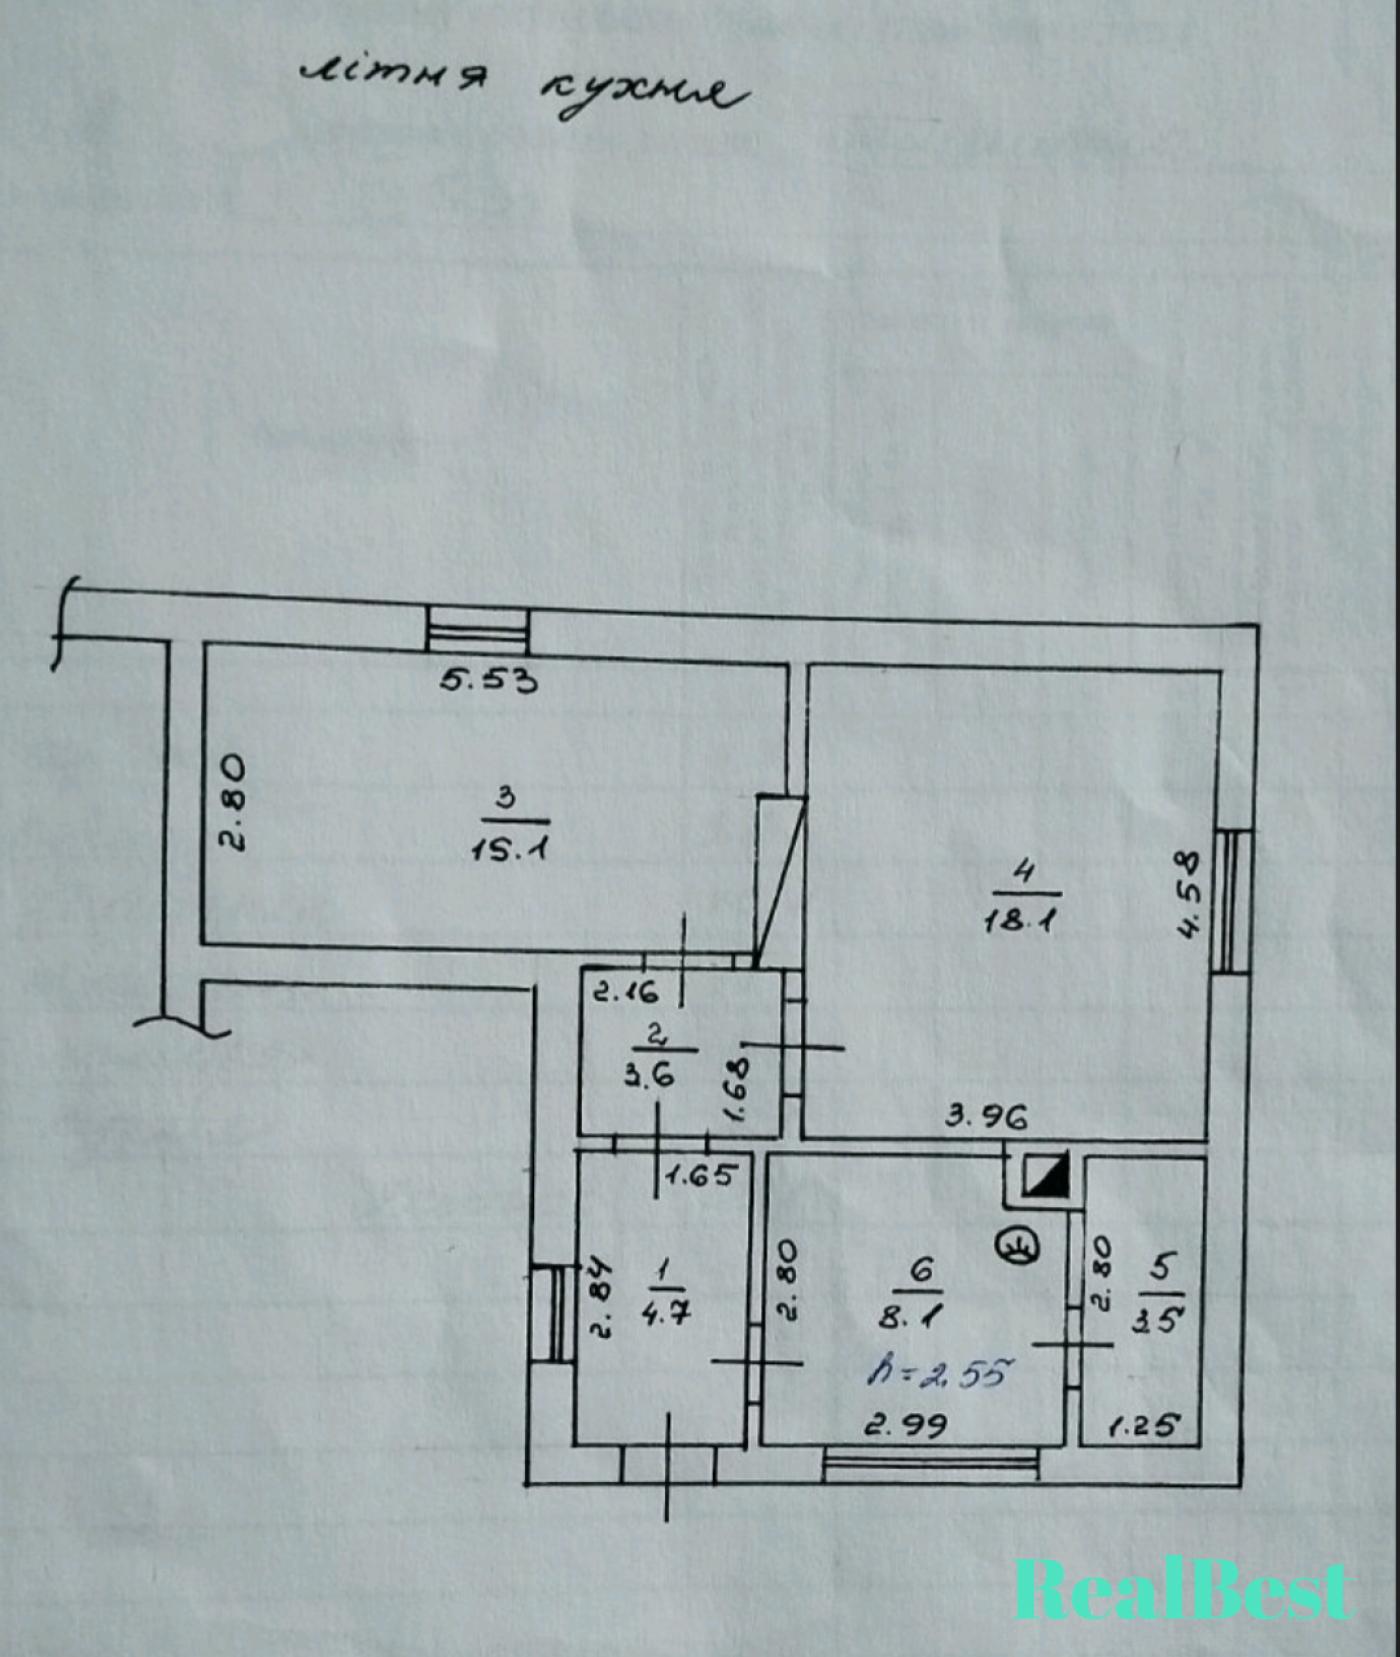 літня кухня
5.53
2.80
3
15.1
4
18.1
4.58
2.16
2
3.6
1.68
3.96
1.65
2.84
1
4.7
2.80
6
8.1
h=2.55
2.99
2.80
5
3.5
1.25
RealBest